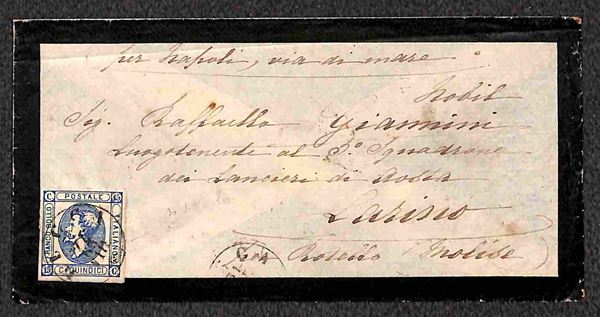 per Napoli, via di mare
Nobil
Sig. Raffaello Giannini
Luogotenente al 3º Squadrone
dei Lancieri di Aosta
Larino
Per Rotello Molise
POSTALE
FRANCO BOLLO
ITALIANO
C. QUINDICI
C 15
15 C